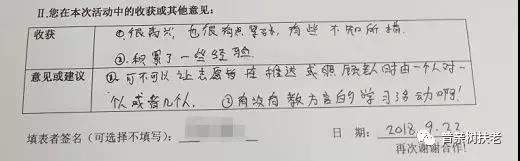 II.您在本次活动中的收获或其他意见:
收获
①.很高兴,也很有点紧张,有些不知所措.
②.积累了一些经验.
意见或建议
①.可不可以让志愿者在推送或照顾老人时由一个人对一
个人或者几个人. ②有没有教方言的学习活动啊!
填表者签名(可选择不填写):
日 期: 2018.9.22
再次谢谢合作!
青亲树扶老